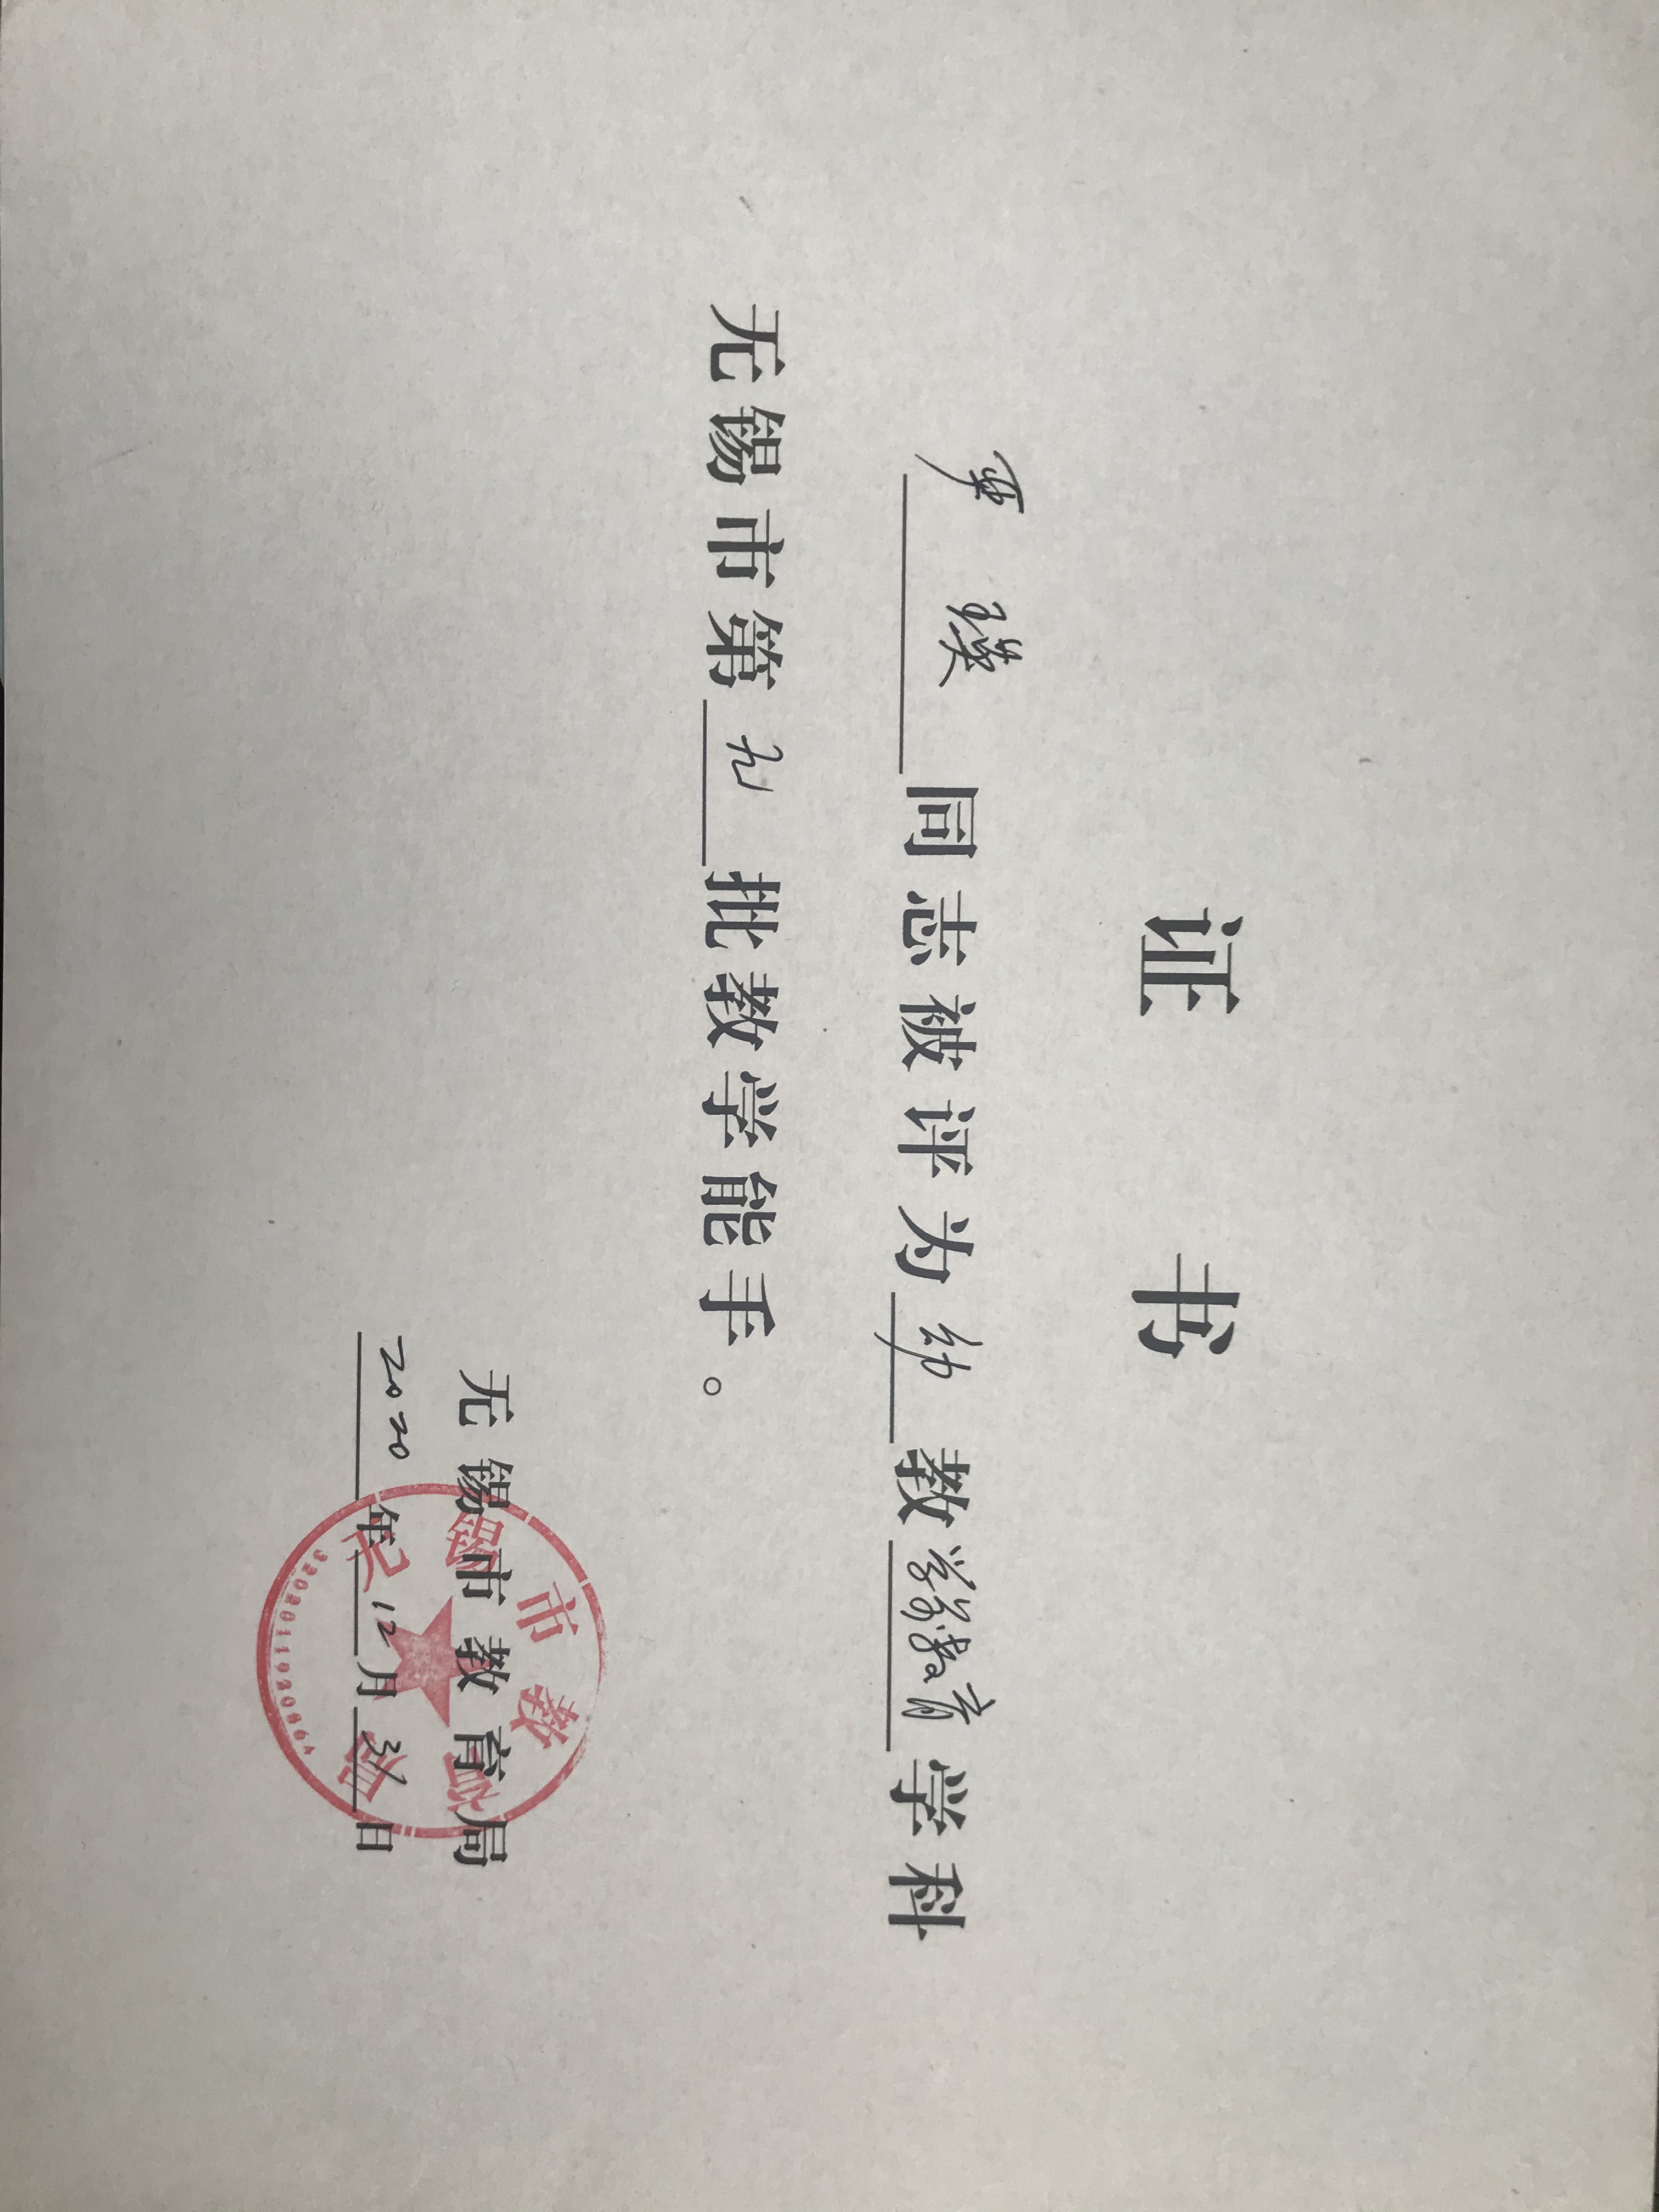 证 书
同志被评为 幼 教 学前教育 学科
无锡市第 九 批教学能手。
无锡市教育局
2020 年 12 月 31 日
无锡市教育局